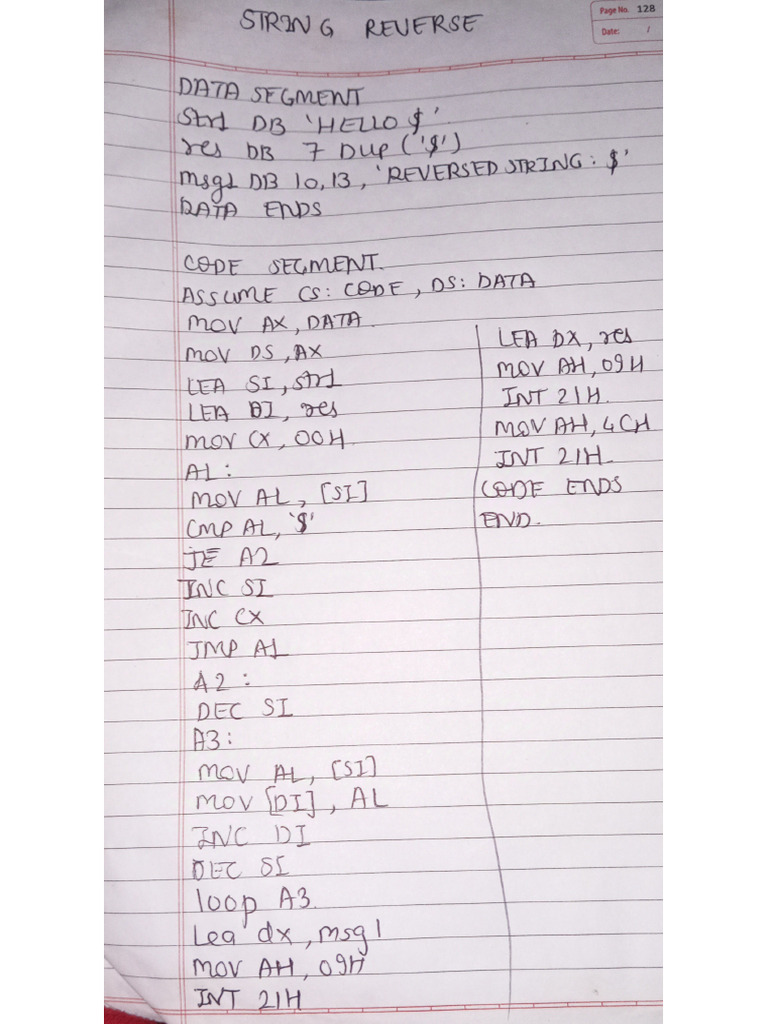 STRING REVERSE
Page No. 128
Date: /
DATA SEGMENT
Str1 DB 'HELLO $'
res DB 7 DUP ('$')
msg1 DB 10,13, 'REVERSED STRING: $'
DATA ENDS
CODE SEGMENT
ASSUME CS: CODE, DS: DATA
MOV AX, DATA
MOV DS, AX
LEA SI, str1
LEA DI, res
MOV CX, 00H
A1:
MOV AL, [SI]
CMP AL, '$'
JE A2
INC SI
INC CX
JMP A1
A2:
DEC SI
A3:
MOV AL, [SI]
MOV [DI], AL
INC DI
DEC SI
loop A3
Lea dx, msg1
MOV AH, 09H
INT 21H
LEA DX, res
MOV AH, 09H
INT 21H
MOV AH, 4CH
INT 21H
CODE ENDS
END.